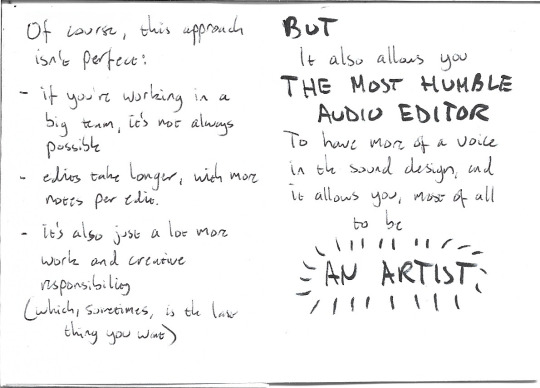 Of course, this approach
isn't perfect:
- if you're working in a
big team, it's not always
possible
- edits take longer, with more
notes per edit.
- it's also just a lot more
work and creative
responsibility
(which, sometimes, is the last
thing you want)
BUT
It also allows you
THE MOST HUMBLE
AUDIO EDITOR
To have more of a voice
in the sound design, and
it allows you, most of all
to be
AN ARTIST